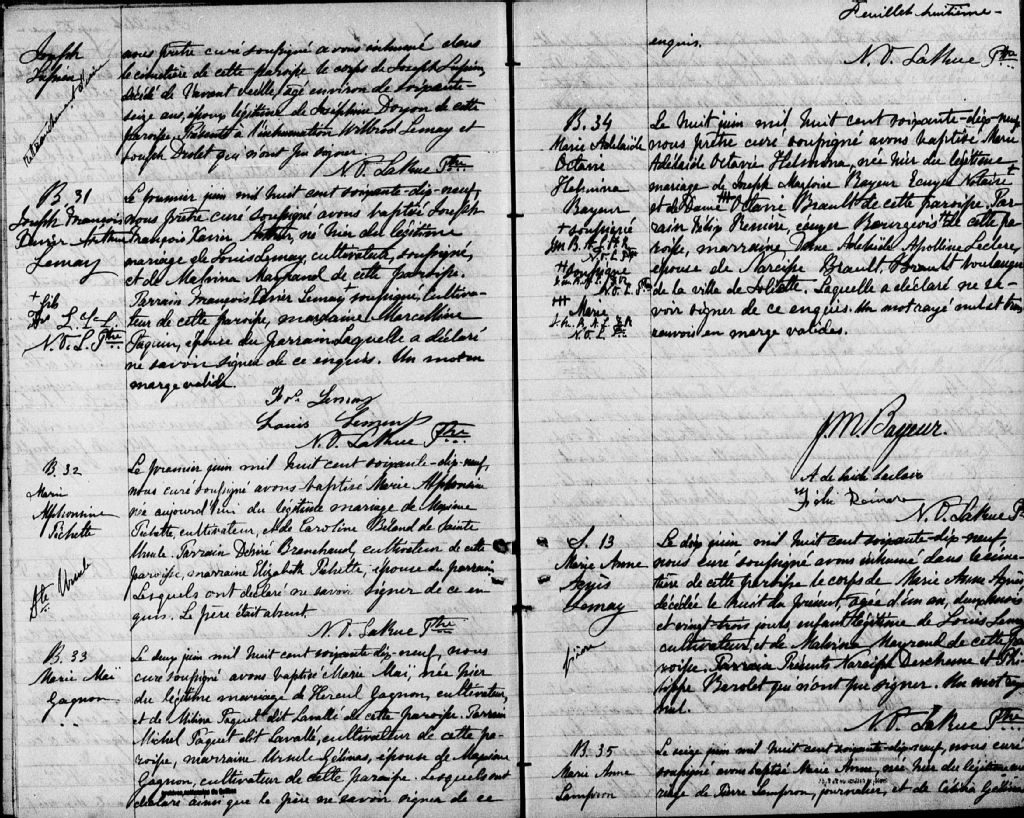 Joseph
nous prêtre curé soussigné avons inhumé dans
le cimetière de cette paroisse le corps de Joseph
décédé de l'avant veille, agé environ de soixante-
seize ans, époux légitime de Joséphine Doyon de cette
paroisse. Présents à l'inhumation Wilbrod Lemay et
Joseph Drolet qui n'ont pu signer.
N. O. LaRue Ptre
B. 31
Joseph François
Xavier Arthur
Lemay
Le premier juin mil huit cent soixante-dix-neuf,
nous prêtre curé soussigné avons baptisé Joseph
François Xavier Arthur, né hier du légitime
mariage de Louis Lemay, cultivateur, soussigné,
et de Malvina Mayrand de cette paroisse.
Parrain François Xavier Lemay + soussigné, cultiva-
teur de cette paroisse, marraine Marcelline
Paquin, épouse du parrain laquelle a déclaré
ne savoir signer de ce enquis. Un mot en
marge valide.
+
L. L.
N. O. L. Ptre
Lemay
Louis Lemay
N. O. LaRue Ptre
B. 32
Marie
Alphonsine
Pichette
Ste Ursule
Le premier juin mil huit cent soixante-dix-neuf,
nous curé soussigné avons baptisé Marie Alphonsine
née aujourd'hui du légitime mariage de Maxime
Pichette, cultivateur, et de Caroline Beland de Sainte
Ursule. Parrain Désiré Branchaud, cultivateur de cette
paroisse, marraine Elizabeth Pichette, épouse du parrain
Lesquels ont déclaré ne savoir signer de ce en-
quis. Le père était absent.
N. O. LaRue Ptre
B. 33
Marie Maï
Gagnon
Le deux juin mil huit cent soixante-dix-neuf, nous
curé soussigné avons baptisé Marie Maï, née hier
du légitime mariage de Gagnon, cultivateur,
et de Paquet dit Lavallé de cette paroisse. Parrain
Michel Paquet dit Lavallé, cultivateur de cette pa-
roisse, marraine Ursule Gélinas, épouse de
Gagnon, cultivateur de cette paroisse. Lesquels ont
déclaré ainsi que le père ne savoir signer de ce
Feuillet huitième -
enquis.
N. O. LaRue Ptre
B. 34
Marie Adelaïde
Octavie
Helmina
Bayeur
+ soussigné
N. O. L. Ptre
++ soussigné
N. O. L. Ptre
+++ Marie
N. O. L. Ptre
Le huit juin mil huit cent soixante-dix-neuf
nous prêtre curé soussigné avons baptisé Marie
Adelaïde Octavie Helmina, née hier du légitime
mariage de Joseph Bayeur Ecuyer Notaire +
et de Dame Octavie Brault de cette paroisse. Par-
rain, écuyer Bourgeois ++ de cette pa-
roisse, marraine, Dame Apolline Leclerc,
épouse de Narcisse Brault, boulanger
de la ville de Joliette. Laquelle a déclaré ne sa-
voir signer de ce enquis. Un mot rayé nul et trois
renvois en marge valides.
J. M. Bayeur.
N. O. LaRue
S. 13
Marie Anne
Agnès
Lemay
Le dix juin mil huit cent soixante-dix-neuf,
nous curé soussigné avons inhumé dans le cime-
tière de cette paroisse le corps de Marie Anne Agnès
décédée le huit du présent, agée d'un an, deux mois
et vingt-trois jours, enfant légitime de Louis Lemay
cultivateur, et de Malvina Mayrand de cette pa-
roisse. Parrain Présents Narcisse et Phi-
lippe qui n'ont pu signer. Un mot rayé
nul.
N. O. LaRue Ptre
B. 35
Marie Anne
Lampron
Le seize juin mil huit cent soixante-dix-neuf, nous curé
soussigné avons baptisé Marie Anne, née hier du légitime ma-
riage de Pierre Lampron, journalier, et de Gélinas